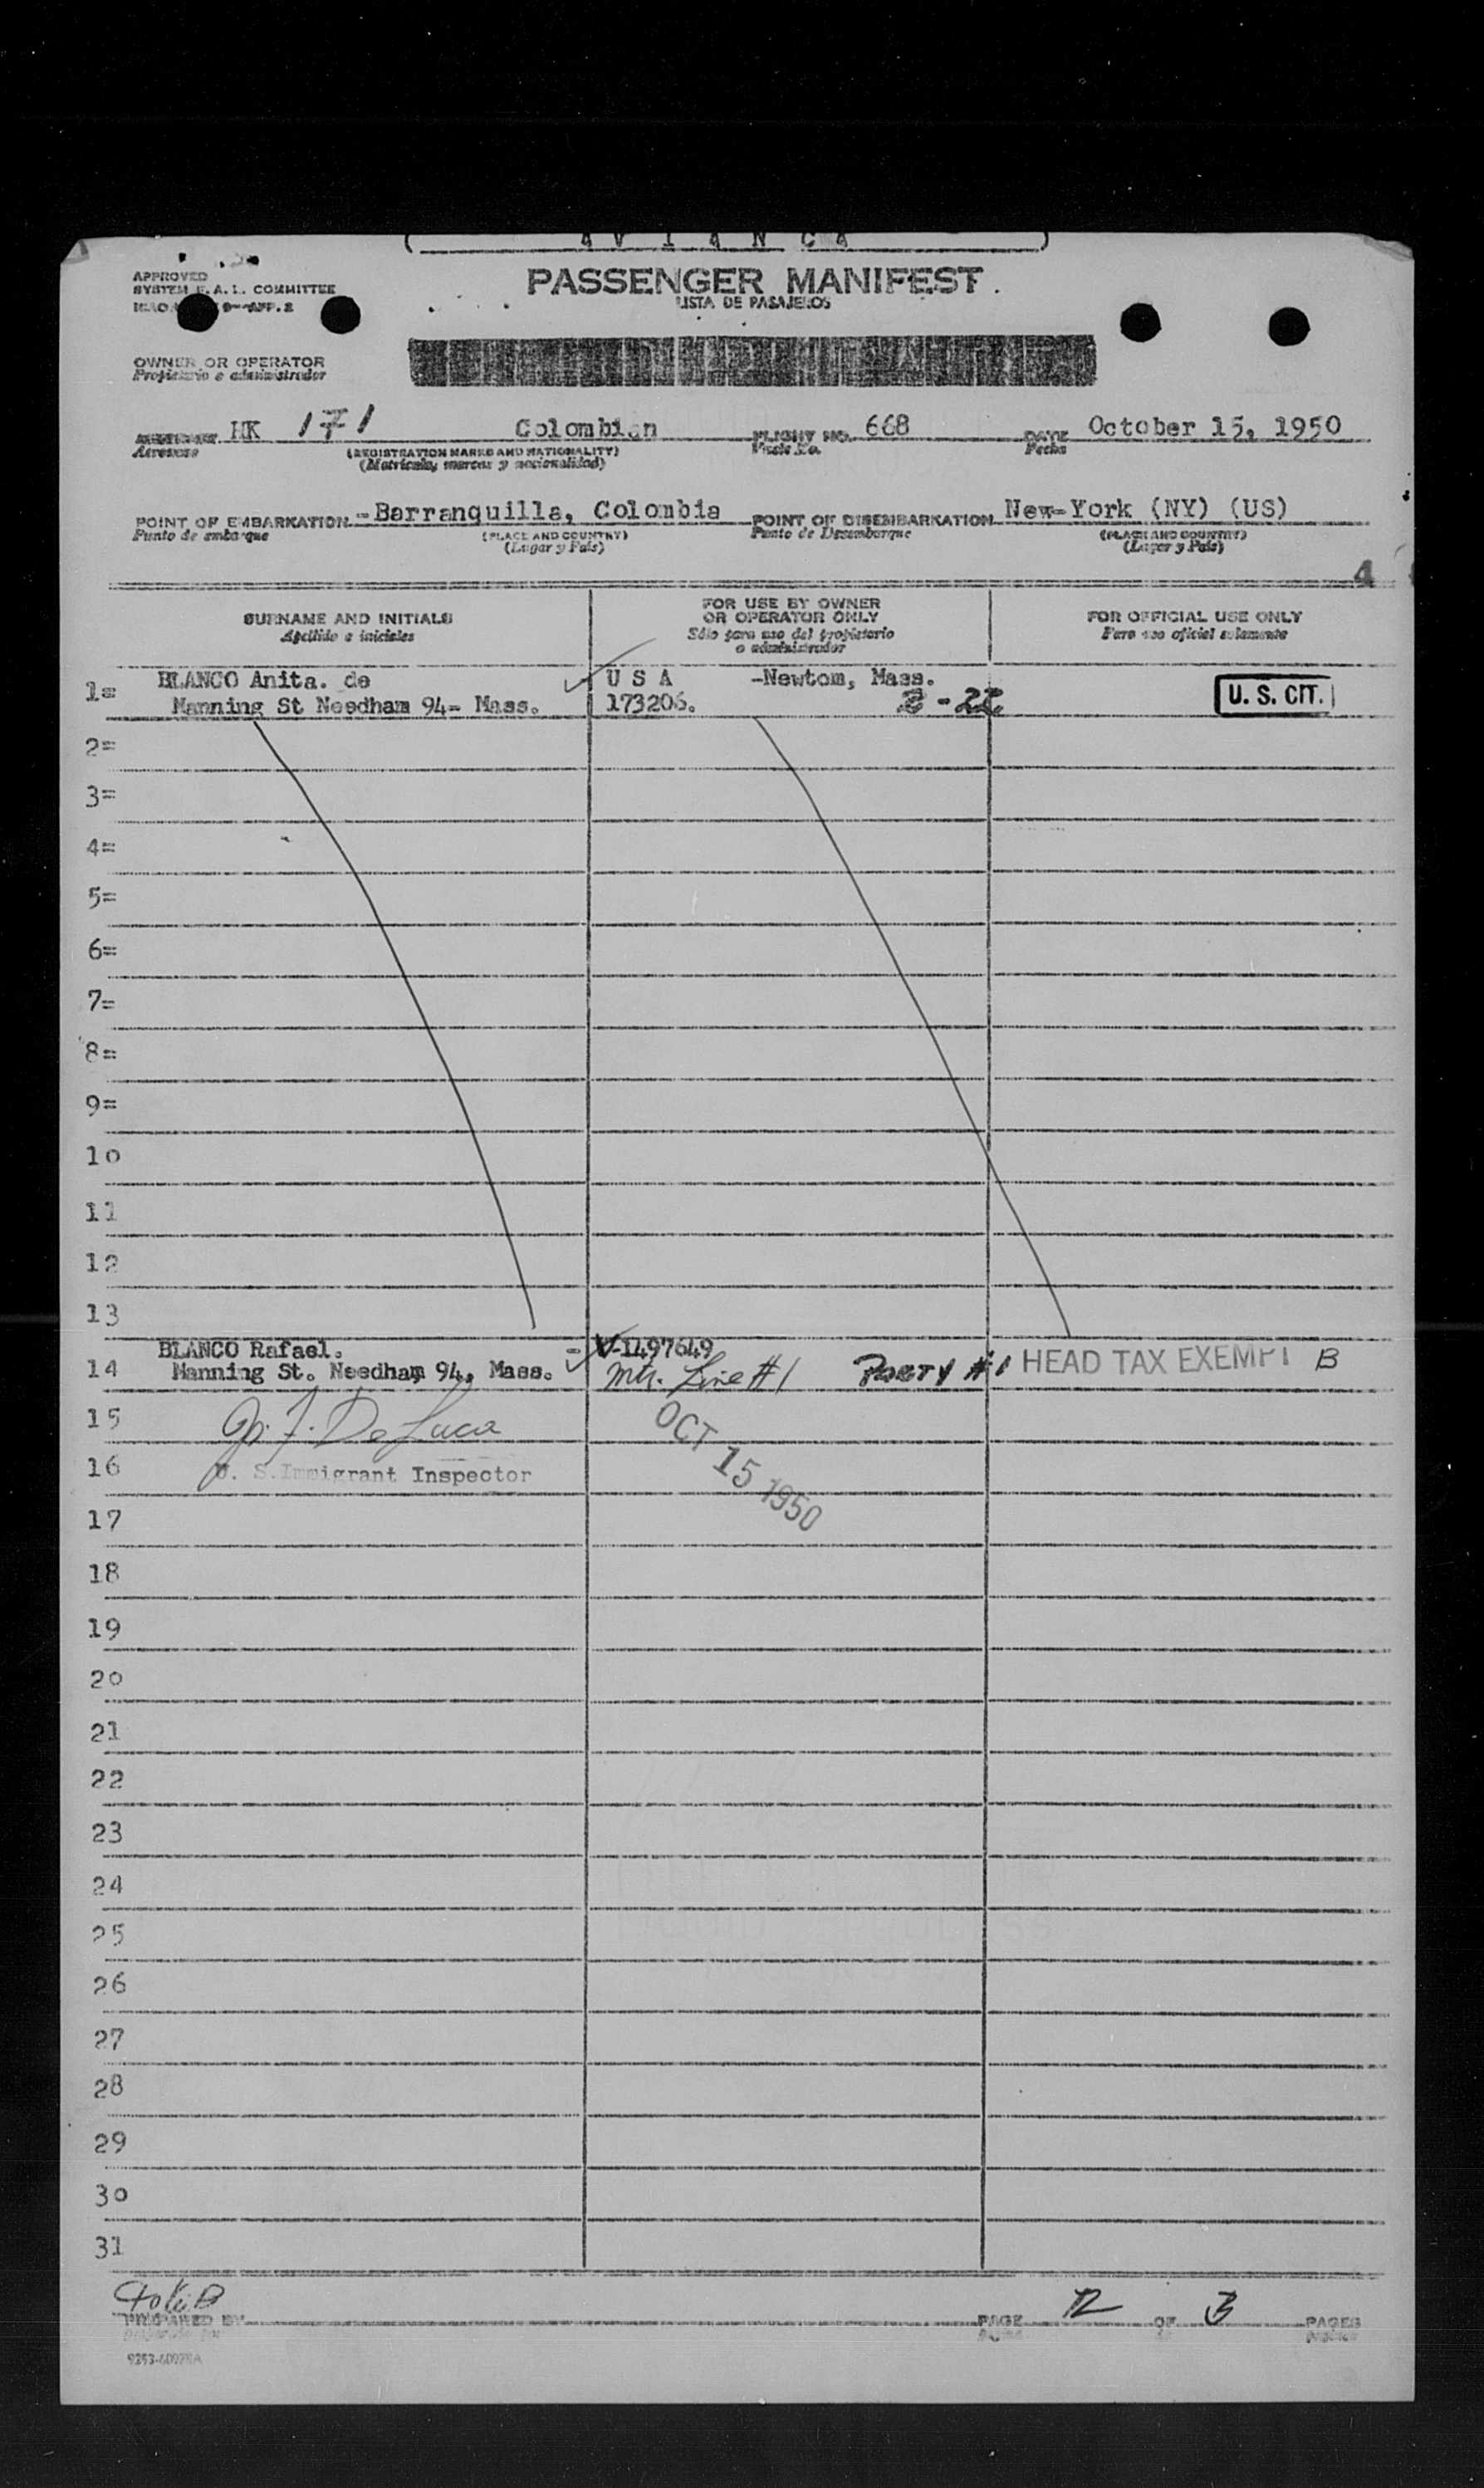 ( A V I A N C A )
APPROVED
SYSTEM F. A. L. COMMITTEE
PASSENGER MANIFEST
LISTA DE PASAJEROS
OWNER OR OPERATOR
Propietario o administrador
HK 171 Colombian FLIGHT NO. 668 DATE October 15, 1950
Aeronave (REGISTRATION MARKS AND NATIONALITY) Fecha
(Matrícula, marcas y nacionalidad)
POINT OF EMBARKATION -Barranquilla, Colombia POINT OF DISEMBARKATION New-York (NY) (US)
Punto de embarque (PLACE AND COUNTRY) Punto de Desembarque (PLACE AND COUNTRY)
(Lugar y País) (Lugar y País)
4
SURNAME AND INITIALS FOR USE BY OWNER OR OPERATOR ONLY FOR OFFICIAL USE ONLY
Apellido e iniciales Sólo para uso del propietario o administrador Para uso oficial solamente
1= BLANCO Anita. de U S A -Newtom, Mass.
Manning St Needham 94- Mass. 173206. U. S. CIT.
2=
3=
4=
5=
6=
7=
8=
9=
10
11
12
13
BLANCO Rafael. - V-1497649
14 Manning St. Needham 94, Mass. Line #1 PARTY #1 HEAD TAX EXEMPT B
15 De Luca OCT 15 1950
16 U. S. Immigrant Inspector
17
18
19
20
21
22
23
24
25
26
27
28
29
30
31
PREPARED BY PAGE 2 OF 3 PAGES